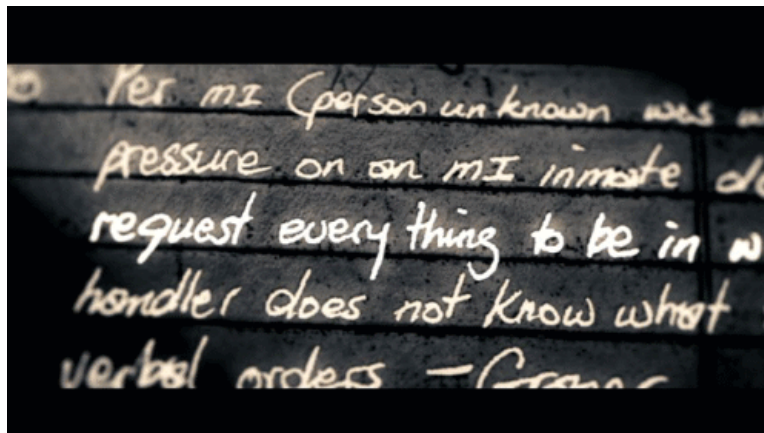 Per MI (person unknown was
pressure on an MI inmate
request everything to be in
handler does not know what
verbal orders — Graner